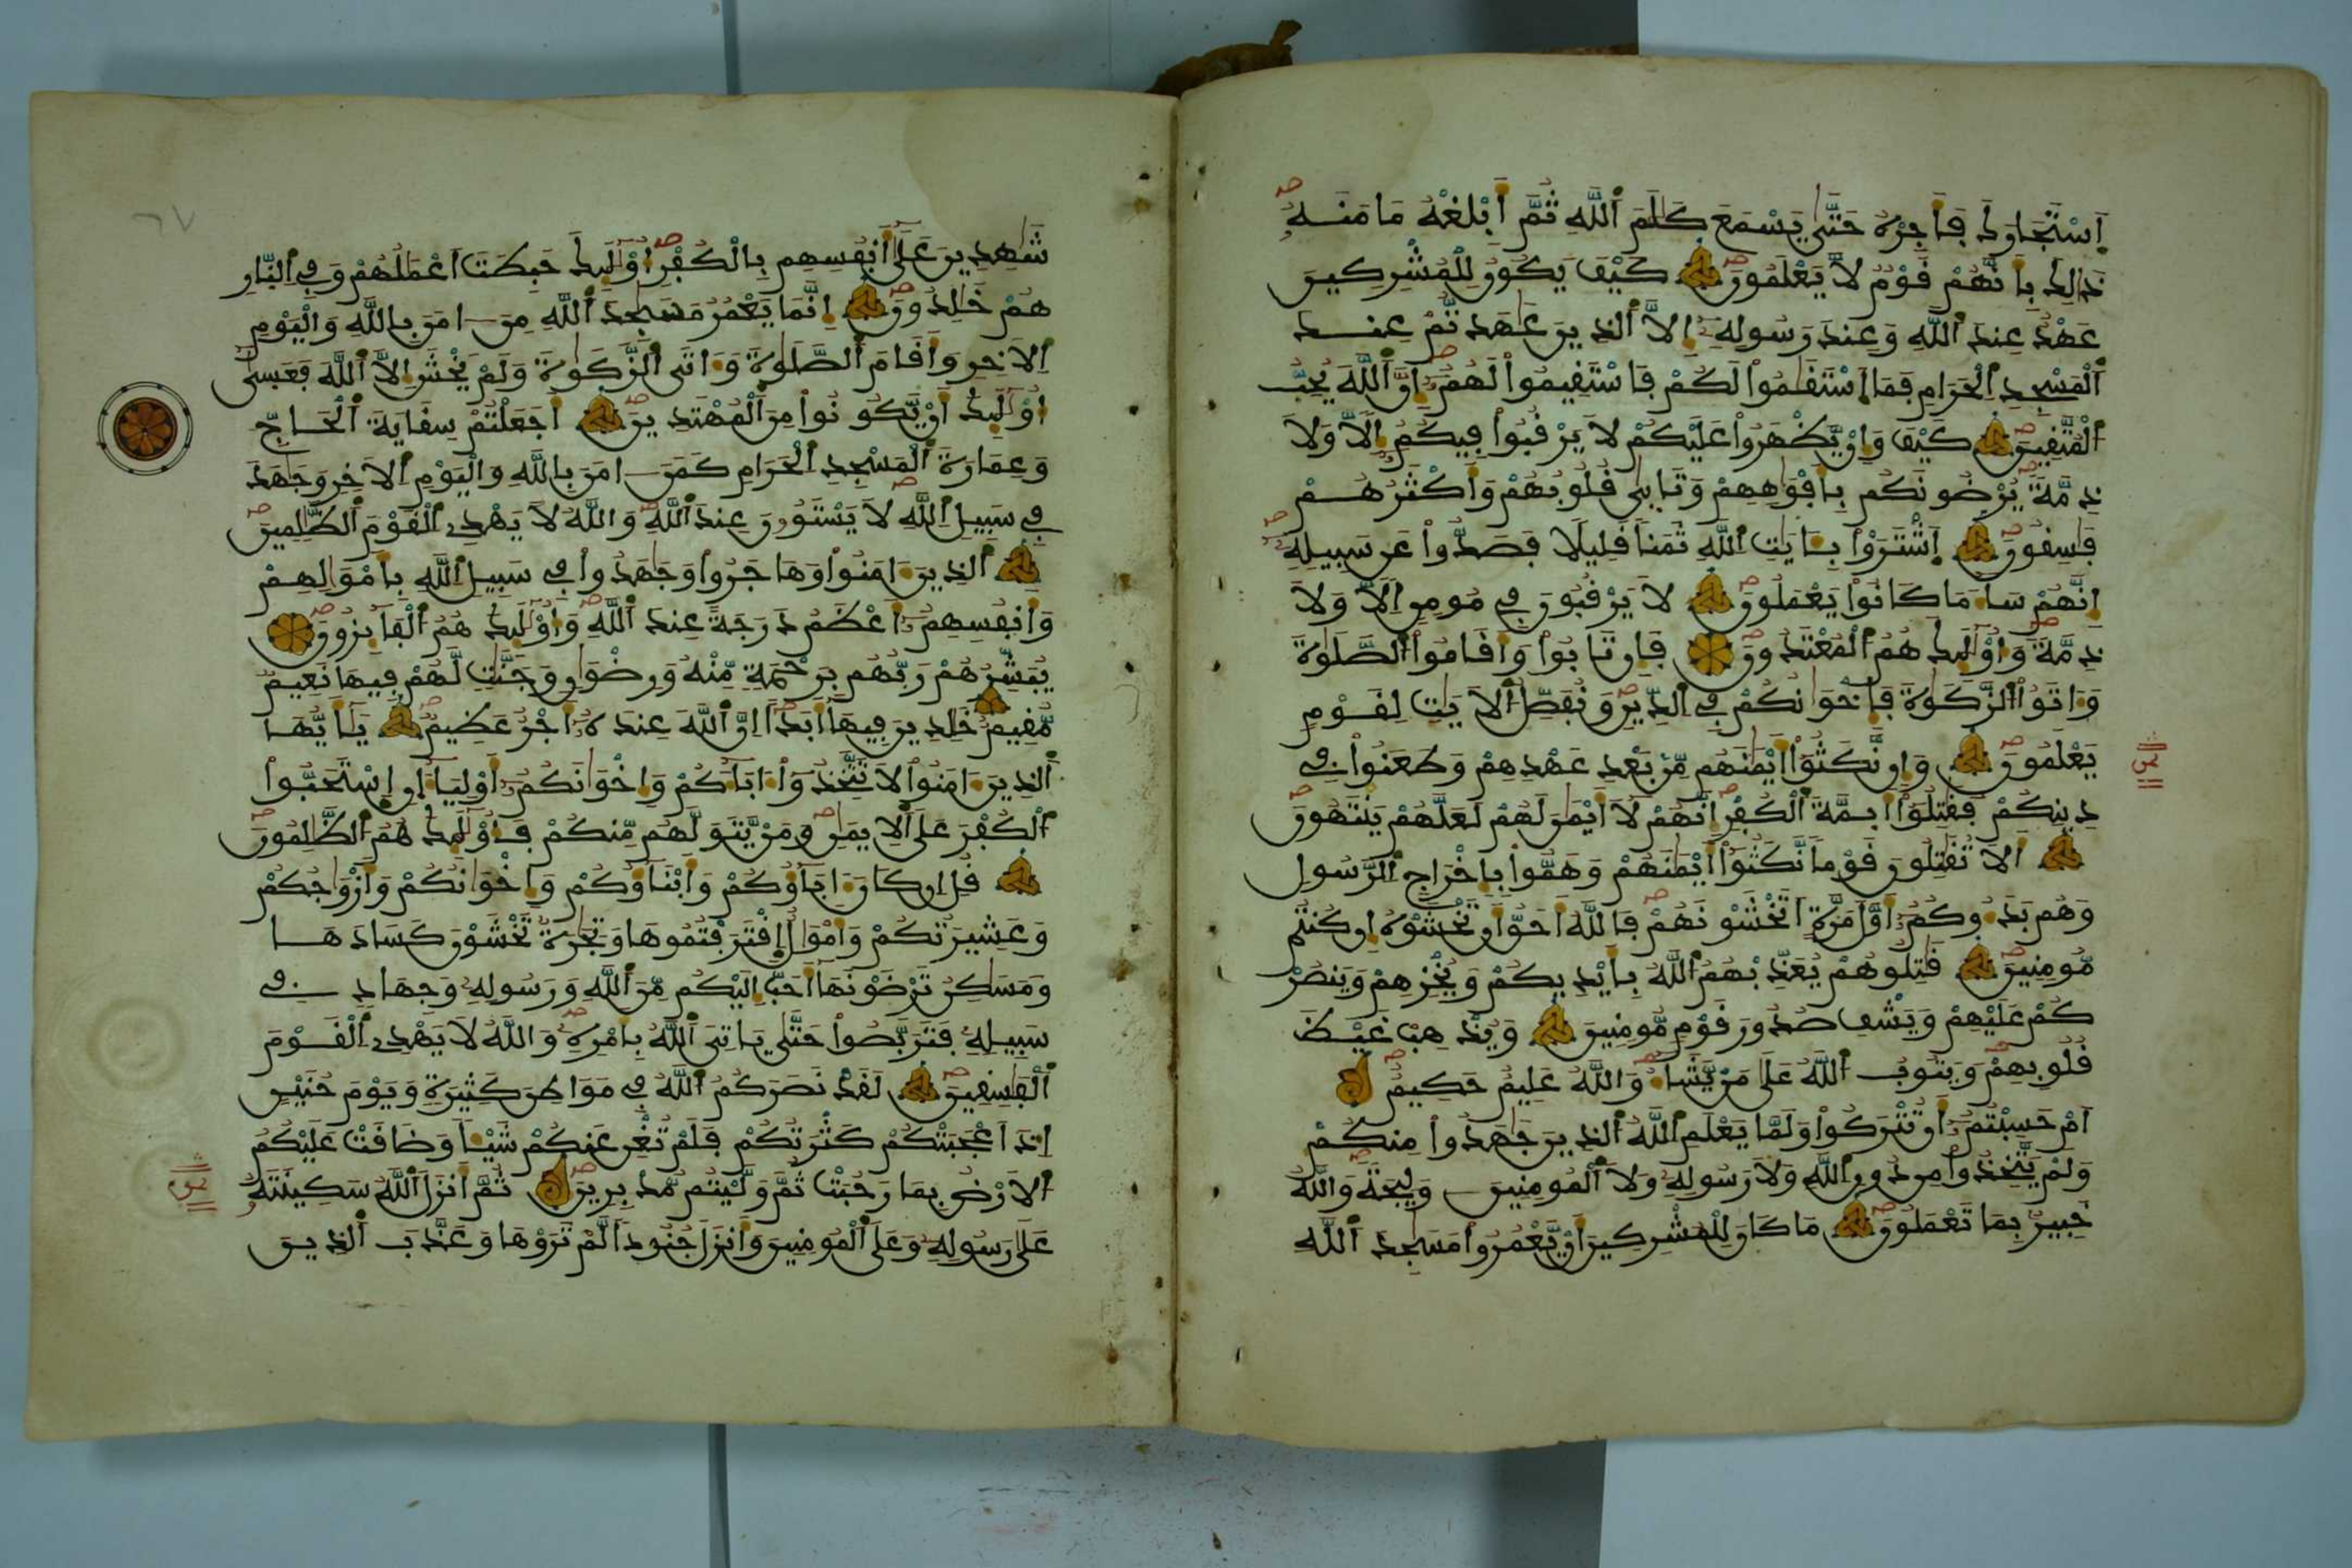 اَسْتَجَارَكَ فَأَجِرْهُ حَتَّىٰ يَسْمَعَ كَلَٰمَ اَللَّهِ ثُمَّ أَبْلِغْهُ مَامَنَهُ
ذَٰلِكَ بِأَنَّهُمْ قَوْمٌ لاَّ يَعْلَمُونَ كَيْفَ يَكُونُ لِلْمُشْرِكِينَ
عَهْدٌ عِندَ اَللَّهِ وَعِندَ رَسُولِهِ إِلاَّ اَلذِينَ عَٰهَدتُّمْ عِندَ
اَلْمَسْجِدِ اِلْحَرَامِ فَمَا اَسْتَقَٰمُواْ لَكُمْ فَاسْتَقِيمُواْ لَهُمُ إِنَّ اَللَّهَ يُحِبُّ
اُلْمُتَّقِينَ كَيْفَ وَإِنْ يَّظْهَرُواْ عَلَيْكُمْ لاَ يَرْقُبُواْ فِيكُمُ إِلّاً وَلاَ
ذِمَّةً يُرْضُونَكُم بِأَفْوَٰهِهِمْ وَتَابِىٰ قُلُوبُهُمْ وَأَكْثَرُهُمْ
فَٰسِقُونَ اَشْتَرَوْاْ بِـَٔايَٰتِ اِللَّهِ ثَمَناً قَلِيلًا فَصَدُّواْ عَن سَبِيلِهِ
إِنَّهُمْ سَآءَ مَا كَانُواْ يَعْمَلُونَ لاَ يَرْقُبُونَ فِى مُومِنٍ اِلّاً وَلاَ
ذِمَّةً وَأُوْلَٰٓئِكَ هُمُ اُلْمُعْتَدُونَ فَإِن تَابُواْ وَأَقَامُواْ اُلصَّلَوٰةَ
وَءَاتَوُاْ اُلزَّكَوٰةَ فَإِخْوَٰنُكُمْ فِى اِلدِّينِ وَنُفَصِّلُ اُلاَيَٰتِ لِقَوْمٍ
يَعْلَمُونَ وَإِن نَّكَثُوٓاْ أَيْمَٰنَهُم مِّنۢ بَعْدِ عَهْدِهِمْ وَطَعَنُواْ فِى
دِينِكُمْ فَقَٰتِلُوٓاْ أَئِمَّةَ اَلْكُفْرِ إِنَّهُمْ لَآ أَيْمَٰنَ لَهُمْ لَعَلَّهُمْ يَنتَهُونَ
اَلاَ تُقَٰتِلُونَ قَوْماً نَّكَثُوٓاْ أَيْمَٰنَهُمْ وَهَمُّواْ بِإِخْرَاجِ اِلرَّسُولِ
وَهُم بَدَءُوكُمُ أَوَّلَ مَرَّةٍ اَتَخْشَوْنَهُمْ فَاللَّهُ أَحَقُّ أَن تَخْشَوْهُ إِن كُنتُم
مُّومِنِينَ قَٰتِلُوهُمْ يُعَذِّبْهُمُ اُللَّهُ بِأَيْدِيكُمْ وَيُخْزِهِمْ وَيَنصُرْ
كُمْ عَلَيْهِمْ وَيَشْفِ صُدُورَ قَوْمٍ مُّومِنِينَ وَيُذْهِبْ غَيْظَ
قُلُوبِهِمْ وَيَتُوبُ اُللَّهُ عَلَىٰ مَنْ يَّشَآءُ وَاللَّهُ عَلِيمٌ حَكِيمٌ
اَمْ حَسِبْتُمُ أَن تُتْرَكُواْ وَلَمَّا يَعْلَمِ اِللَّهُ اُلذِينَ جَٰهَدُواْ مِنكُمْ
وَلَمْ يَتَّخِذُواْ مِن دُونِ اِللَّهِ وَلاَ رَسُولِهِ وَلاَ اَلْمُومِنِينَ وَلِيجَةً وَاللَّهُ
خَبِيرٌ بِمَا تَعْمَلُونَ مَا كَانَ لِلْمُشْرِكِينَ أَنْ يَّعْمُرُواْ مَسَٰجِدَ اَللَّهِ
شَٰهِدِينَ عَلَىٰٓ أَنفُسِهِم بِالْكُفْرِ أُوْلَٰٓئِكَ حَبِطَتَ اَعْمَٰلُهُمْ وَفِى اِلنَّارِ
هُمْ خَٰلِدُونَ إِنَّمَا يَعْمُرُ مَسَٰجِدَ اَللَّهِ مَنَ اٰمَنَ بِاللَّهِ وَالْيَوْمِ
اِلاَخِرِ وَأَقَامَ اَلصَّلَوٰةَ وَءَاتَى اَلزَّكَوٰةَ وَلَمْ يَخْشَ إِلاَّ اَللَّهَ فَعَسَىٰٓ
أُوْلَٰٓئِكَ أَنْ يَّكُونُواْ مِنَ اَلْمُهْتَدِينَ أَجَعَلْتُمْ سِقَايَةَ اَلْحَآجِّ
وَعِمَارَةَ اَلْمَسْجِدِ اِلْحَرَامِ كَمَنَ اٰمَنَ بِاللَّهِ وَالْيَوْمِ اِلاَخِرِ وَجَٰهَدَ
فِى سَبِيلِ اِللَّهِ لاَ يَسْتَوُۥنَ عِندَ اَللَّهِ وَاللَّهُ لاَ يَهْدِى اِلْقَوْمَ اَلظَّٰلِمِينَ
اَلذِينَ ءَامَنُواْ وَهَاجَرُواْ وَجَٰهَدُواْ فِى سَبِيلِ اِللَّهِ بِأَمْوَٰلِهِمْ
وَأَنفُسِهِمُ أَعْظَمُ دَرَجَةً عِندَ اَللَّهِ وَأُوْلَٰٓئِكَ هُمُ اُلْفَآئِزُونَ
يُبَشِّرُهُمْ رَبُّهُم بِرَحْمَةٍ مِّنْهُ وَرِضْوَٰنٍ وَجَنَّٰتٍ لَّهُمْ فِيهَا نَعِيمٌ
مُّقِيمٌ خَٰلِدِينَ فِيهَآ أَبَداً اِنَّ اَللَّهَ عِندَهُ أَجْرٌ عَظِيمٌ يَٰٓأَيُّهَا
اَلذِينَ ءَامَنُواْ لاَ تَتَّخِذُوٓاْ ءَابَآءَكُمْ وَإِخْوَٰنَكُمُ أَوْلِيَآءَ اِنِ اِسْتَحَبُّواْ
اُلْكُفْرَ عَلَى اَلاِيمَٰنِ وَمَنْ يَّتَوَلَّهُم مِّنكُمْ فَأُوْلَٰٓئِكَ هُمُ اُلظَّٰلِمُونَ
قُلِ اِن كَانَ ءَابَآؤُكُمْ وَأَبْنَآؤُكُمْ وَإِخْوَٰنُكُمْ وَأَزْوَٰجُكُمْ
وَعَشِيرَتُكُمْ وَأَمْوَٰلٌ اِقْتَرَفْتُمُوهَا وَتِجَٰرَةٌ تَخْشَوْنَ كَسَادَهَا
وَمَسَٰكِنُ تَرْضَوْنَهَآ أَحَبَّ إِلَيْكُم مِّنَ اَللَّهِ وَرَسُولِهِ وَجِهَادٍ فِى
سَبِيلِهِ فَتَرَبَّصُواْ حَتَّىٰ يَاتِىَ اَللَّهُ بِأَمْرِهِ وَاللَّهُ لاَ يَهْدِى اِلْقَوْمَ
اَلْفَٰسِقِينَ لَقَدْ نَصَرَكُمُ اُللَّهُ فِى مَوَاطِنَ كَثِيرَةٍ وَيَوْمَ حُنَيْنٍ
اِذَ اَعْجَبَتْكُمْ كَثْرَتُكُمْ فَلَمْ تُغْنِ عَنكُمْ شَيْـًٔا وَضَاقَتْ عَلَيْكُمُ
اُلاَرْضُ بِمَا رَحُبَتْ ثُمَّ وَلَّيْتُم مُّدْبِرِينَ ثُمَّ أَنزَلَ اَللَّهُ سَكِينَتَهُ
عَلَىٰ رَسُولِهِ وَعَلَى اَلْمُومِنِينَ وَأَنزَلَ جُنُوداً لَّمْ تَرَوْهَا وَعَذَّبَ اَلذِينَ
٦٧